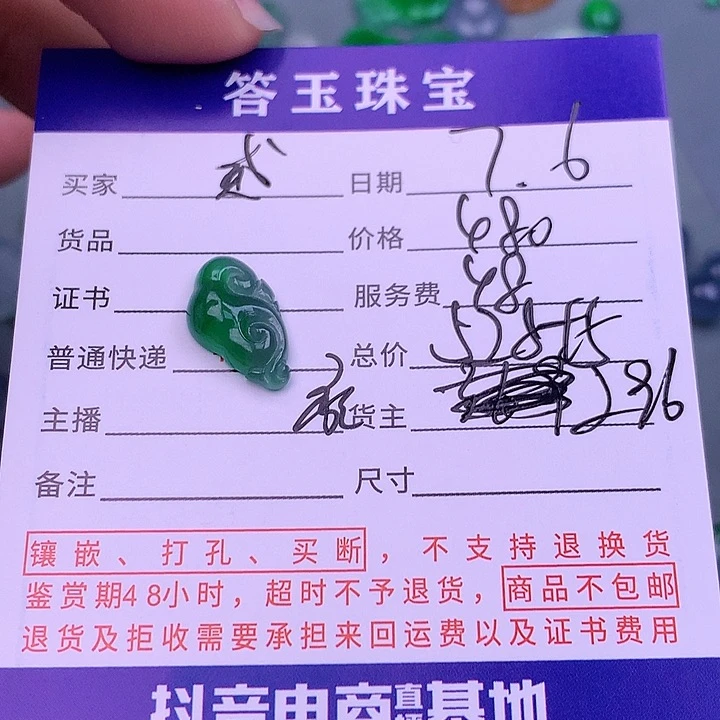 答玉珠宝
买家 日期 7.6
货品 价格 680
证书 服务费 48
普通快递 总价
主播 货主
备注 尺寸
镶嵌、打孔、买断，不支持退换货
鉴赏期48小时，超时不予退货，商品不包邮
退货及拒收需要承担来回运费以及证书费用
抖音电商直播基地